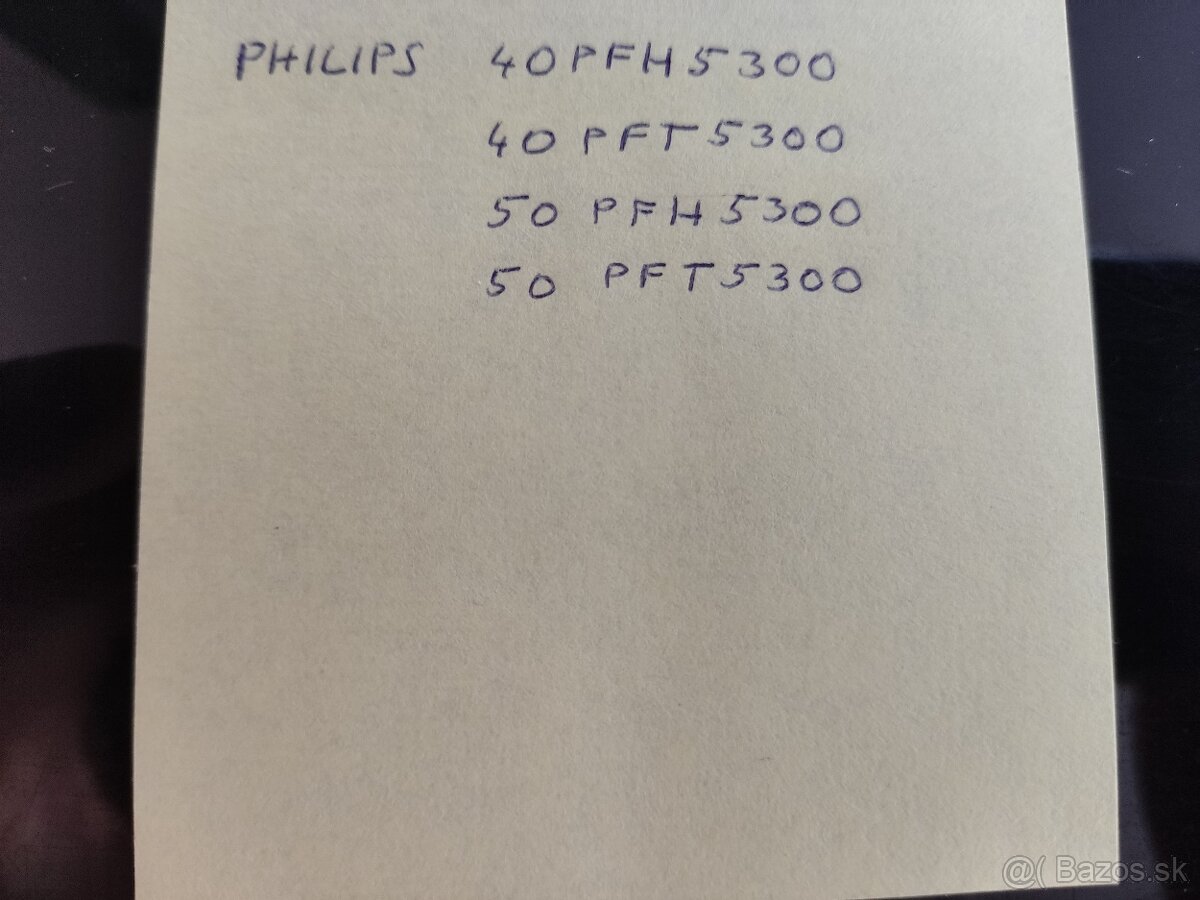 PHILIPS 40PFH5300
40 PFT5300
50 PFH5300
50 PFT5300
@( Bazos.sk